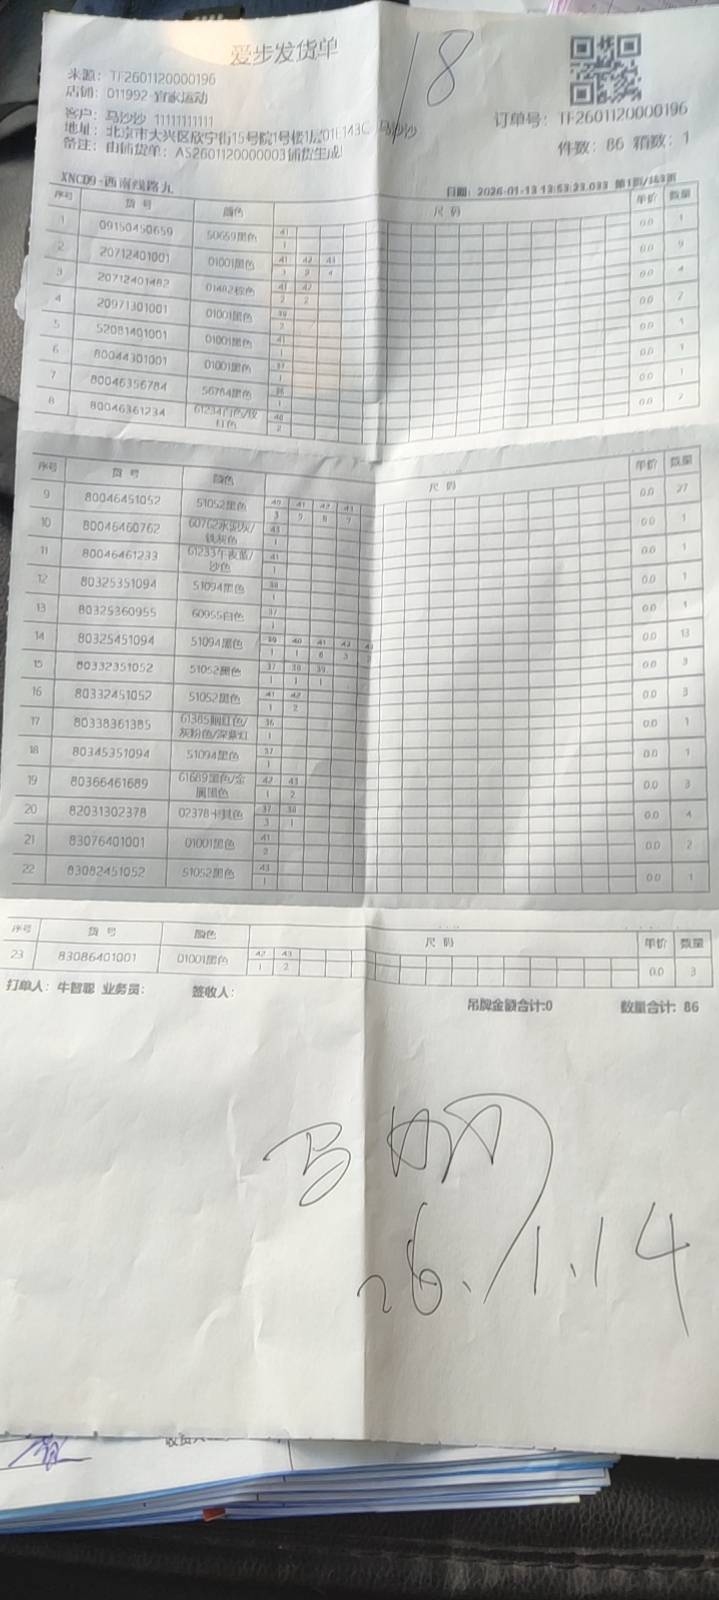 爱步发货单
18
来源：TF2601120000196
店铺：011992-宜家运动
客户：马沙沙 11111111111
地址：北京市大兴区欣宁街15号院1号楼 马沙沙
备注：由铺货单：AS2601120000003铺货生成
订单号：TF2601120000196
件数：86 箱数：1
XNCD9-西南线路九
日期：2026-01-13 13:53:23.033
序号 货号 颜色 尺码 单价 数量
1 09150450659 50659黑色 41 0.0 1
1
2 20712401001 01001黑色 41 42 43 0.0 9
3 2 4
3 20712401482 01482棕色 41 42 0.0 4
2 2
4 20971301001 01001黑色 39 0.0 2
2
5 52081401001 01001黑色 41 0.0 1
1
6 80044301001 01001黑色 37 0.0 1
1
7 80046356784 56784黑色 0.0 1
1
8 80046361234 61234白色/玫红色 40 0.0 2
2
序号 货号 颜色 尺码 单价 数量
9 80046451052 51052黑色 40 41 42 43 0.0 27
3 9 8 7
10 80046460762 60762水泥灰/铁灰色 43 0.0 1
1
11 80046461233 61233午夜蓝/沙色 41 0.0 1
1
12 80325351094 51094黑色 38 0.0 1
1
13 80325360955 60955白色 37 0.0 1
1
14 80325451094 51094黑色 39 40 41 0.0 13
1 1 6 3
15 80332351052 51052黑色 37 38 39 0.0 3
1 1 1
16 80332451052 51052黑色 41 42 0.0 3
1 2
17 80338361385 61385胭红色/灰粉色/深紫红 36 0.0 1
1
18 80345351094 51094黑色 37 0.0 1
1
19 80366461689 61689黑色/金属黑色 42 43 0.0 3
1 2
20 82031302378 02378卡其色 37 38 0.0 4
3 1
21 83076401001 01001黑色 41 0.0 2
2
22 83082451052 51052黑色 43 0.0 1
1
序号 货号 颜色 尺码 单价 数量
23 83086401001 01001黑色 42 43 0.0 3
1 2
打单人：牛智聪 业务员： 签收人：
吊牌金额合计:0 数量合计: 86
26.1.14